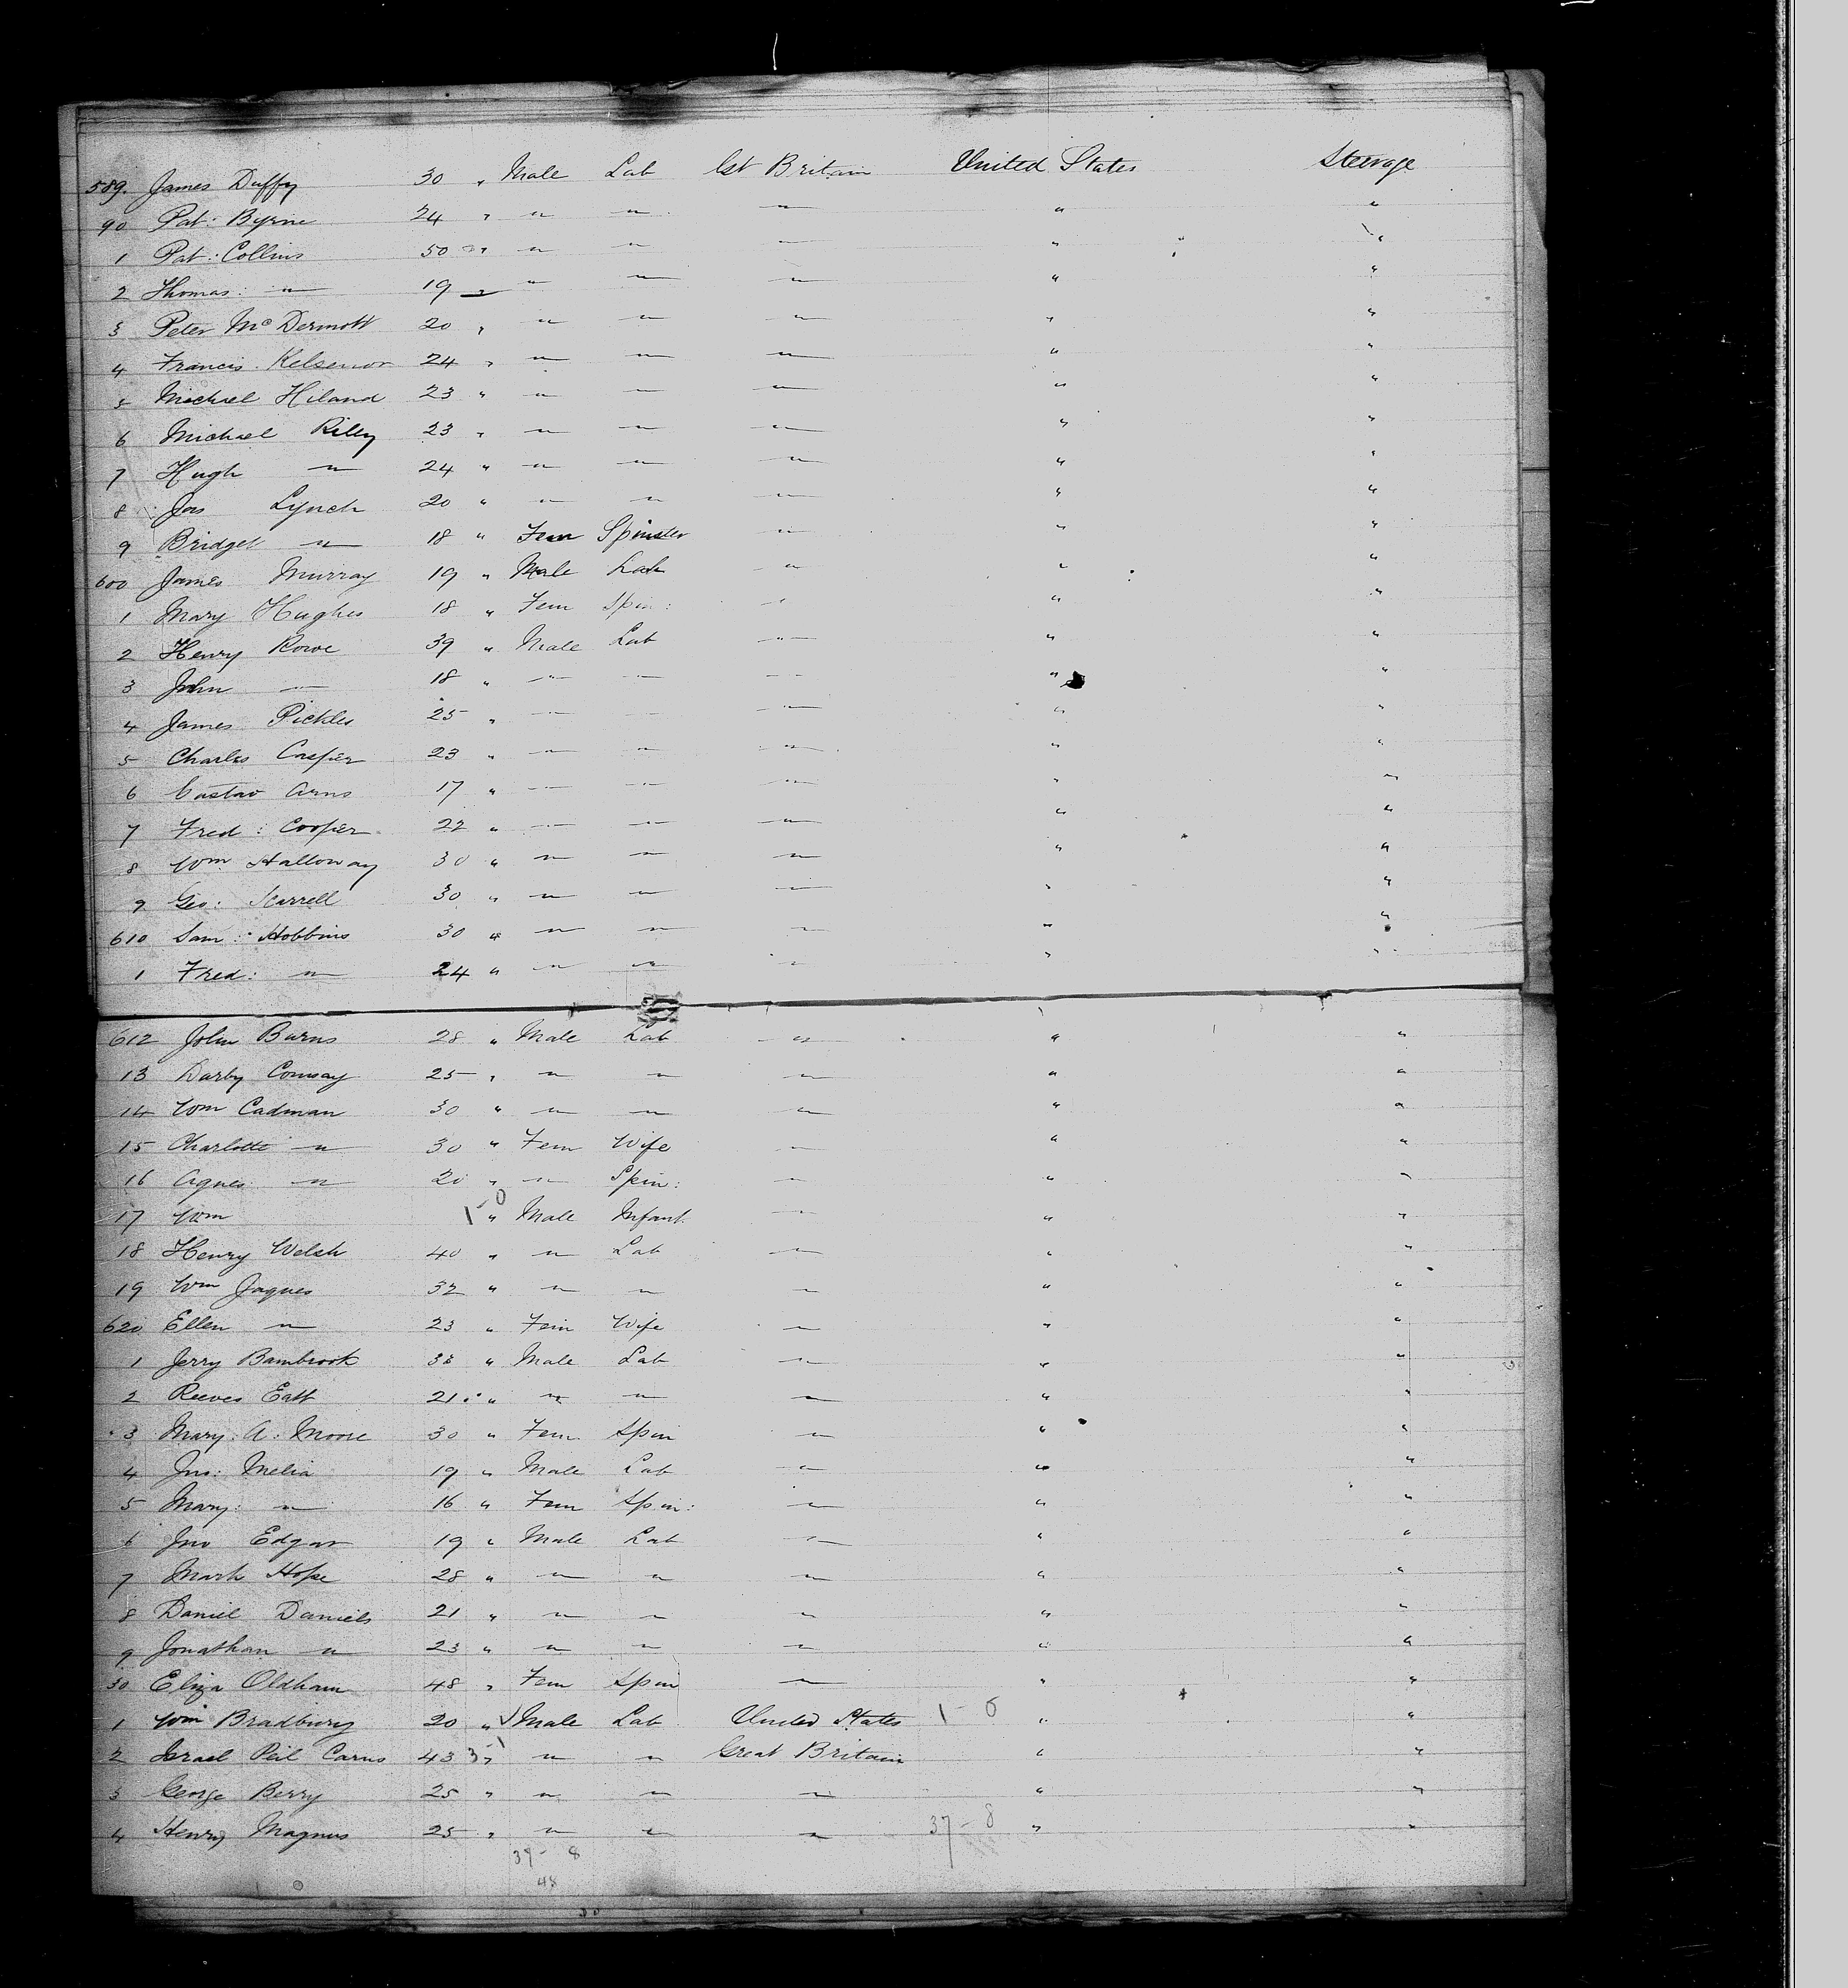 589. James Duffy 30 " Male Lab Gt Britain United States Steerage
90 Pat: Byrne 24 " " " " " "
1 Pat: Collins 50 " " " " " "
2 Thomas: " 19 " " " " " "
3 Peter McDermott 20 " " " " " "
4 Francis 24 " " " " " "
5 Michael Hiland 23 " " " " " "
6 Michael Rily 23 " " " " " "
7 Hugh " 24 " " " " " "
8 Jas Lynch 20 " " " " " "
9 Bridget " 18 " Fem Spinster " " "
600 James Murray 19 " Male Lab " " "
1 Mary Hughes 18 " Fem Spin: " " "
2 Henry Rowe 39 " Male Lab " " "
3 John " 18 " " " " " "
4 James Pickles 25 " " " " " "
5 Charles Casper 23 " " " " " "
6 Gustav Arns 17 " " " " " "
7 Fred: Cooper 22 " " " " " "
8 Wm Halloway 30 " " " " " "
9 Geo: 30 " " " " " "
610 Sam: Hobbins 30 " " " " " "
1 Fred: " 24 " " " " "
612 John Burns 28 " Male Lab " " "
13 Darby Conway 25 " " " " " "
14 Wm Cadman 30 " " " " " "
15 Charlotte " 30 " Fem Wife " " "
16 Agnes " 20 " " Spin: " " "
17 Wm 1-0 " Male Infant " " "
18 Henry Welsh 40 " " Lab " " "
19 Wm Jaques 32 " " " " " "
620 Ellen " 23 " Fem Wife " " "
1 Jerry Bambrook " Male Lab " " "
2 Reeves Eatt 21 " " " " " "
3 Mary: A: Moore 30 " Fem Spin " " "
4 Jno: Melia 19 " Male Lab " " "
5 Mary: " 16 " Fem Spin: " " "
6 Jno Edgar 19 " Male Lab " " "
7 Mark Hope 28 " " " " " "
8 Daniel Daniels 21 " " " " " "
9 Jonathan " 23 " " " " " "
30 Eliza Oldham 48 " Fem Spin " " "
1 Wm Bradbury 20 " Male Lab United States 1-0 " "
2 Israel Carns 43 " " " Great Britain " "
3 George Berry 25 " " " " " "
4 Henry Magnus 25 " " " " 37-8 " "
37-8
48